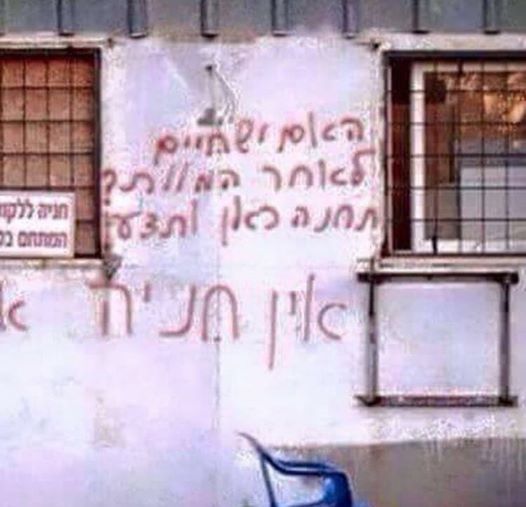 האם יש חיים
לאחר המוות?
תחנה כאן ותדע
אין חניה
חניה ללקו
המתחם